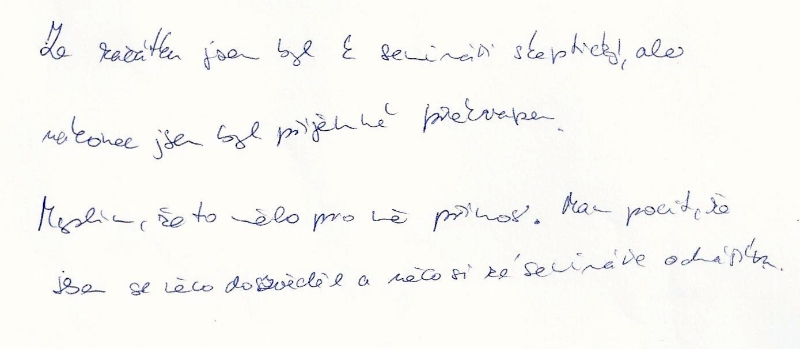 Ze začátku jsem byl k semináři skeptický, ale
nakonec jsem byl příjemně překvapen.
Myslím, že to mělo pro mě přínos. Mám pocit, že
jsem se něco dozvěděl a něco si ze semináře odnáším.